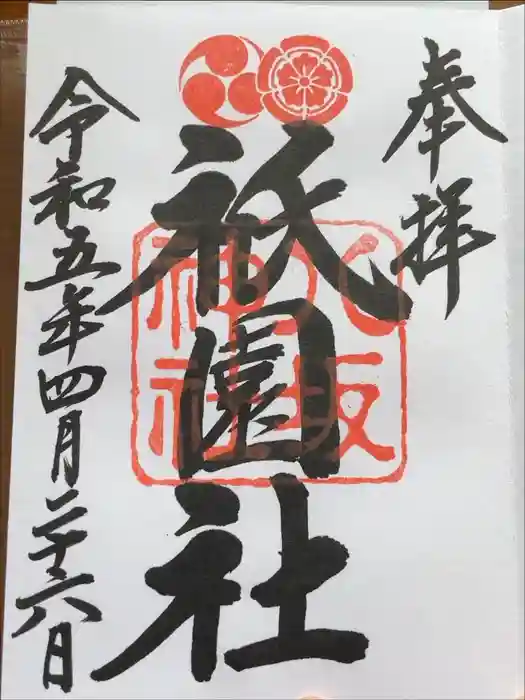 奉拝
祇園社
八坂神社
令和五年四月二十六日